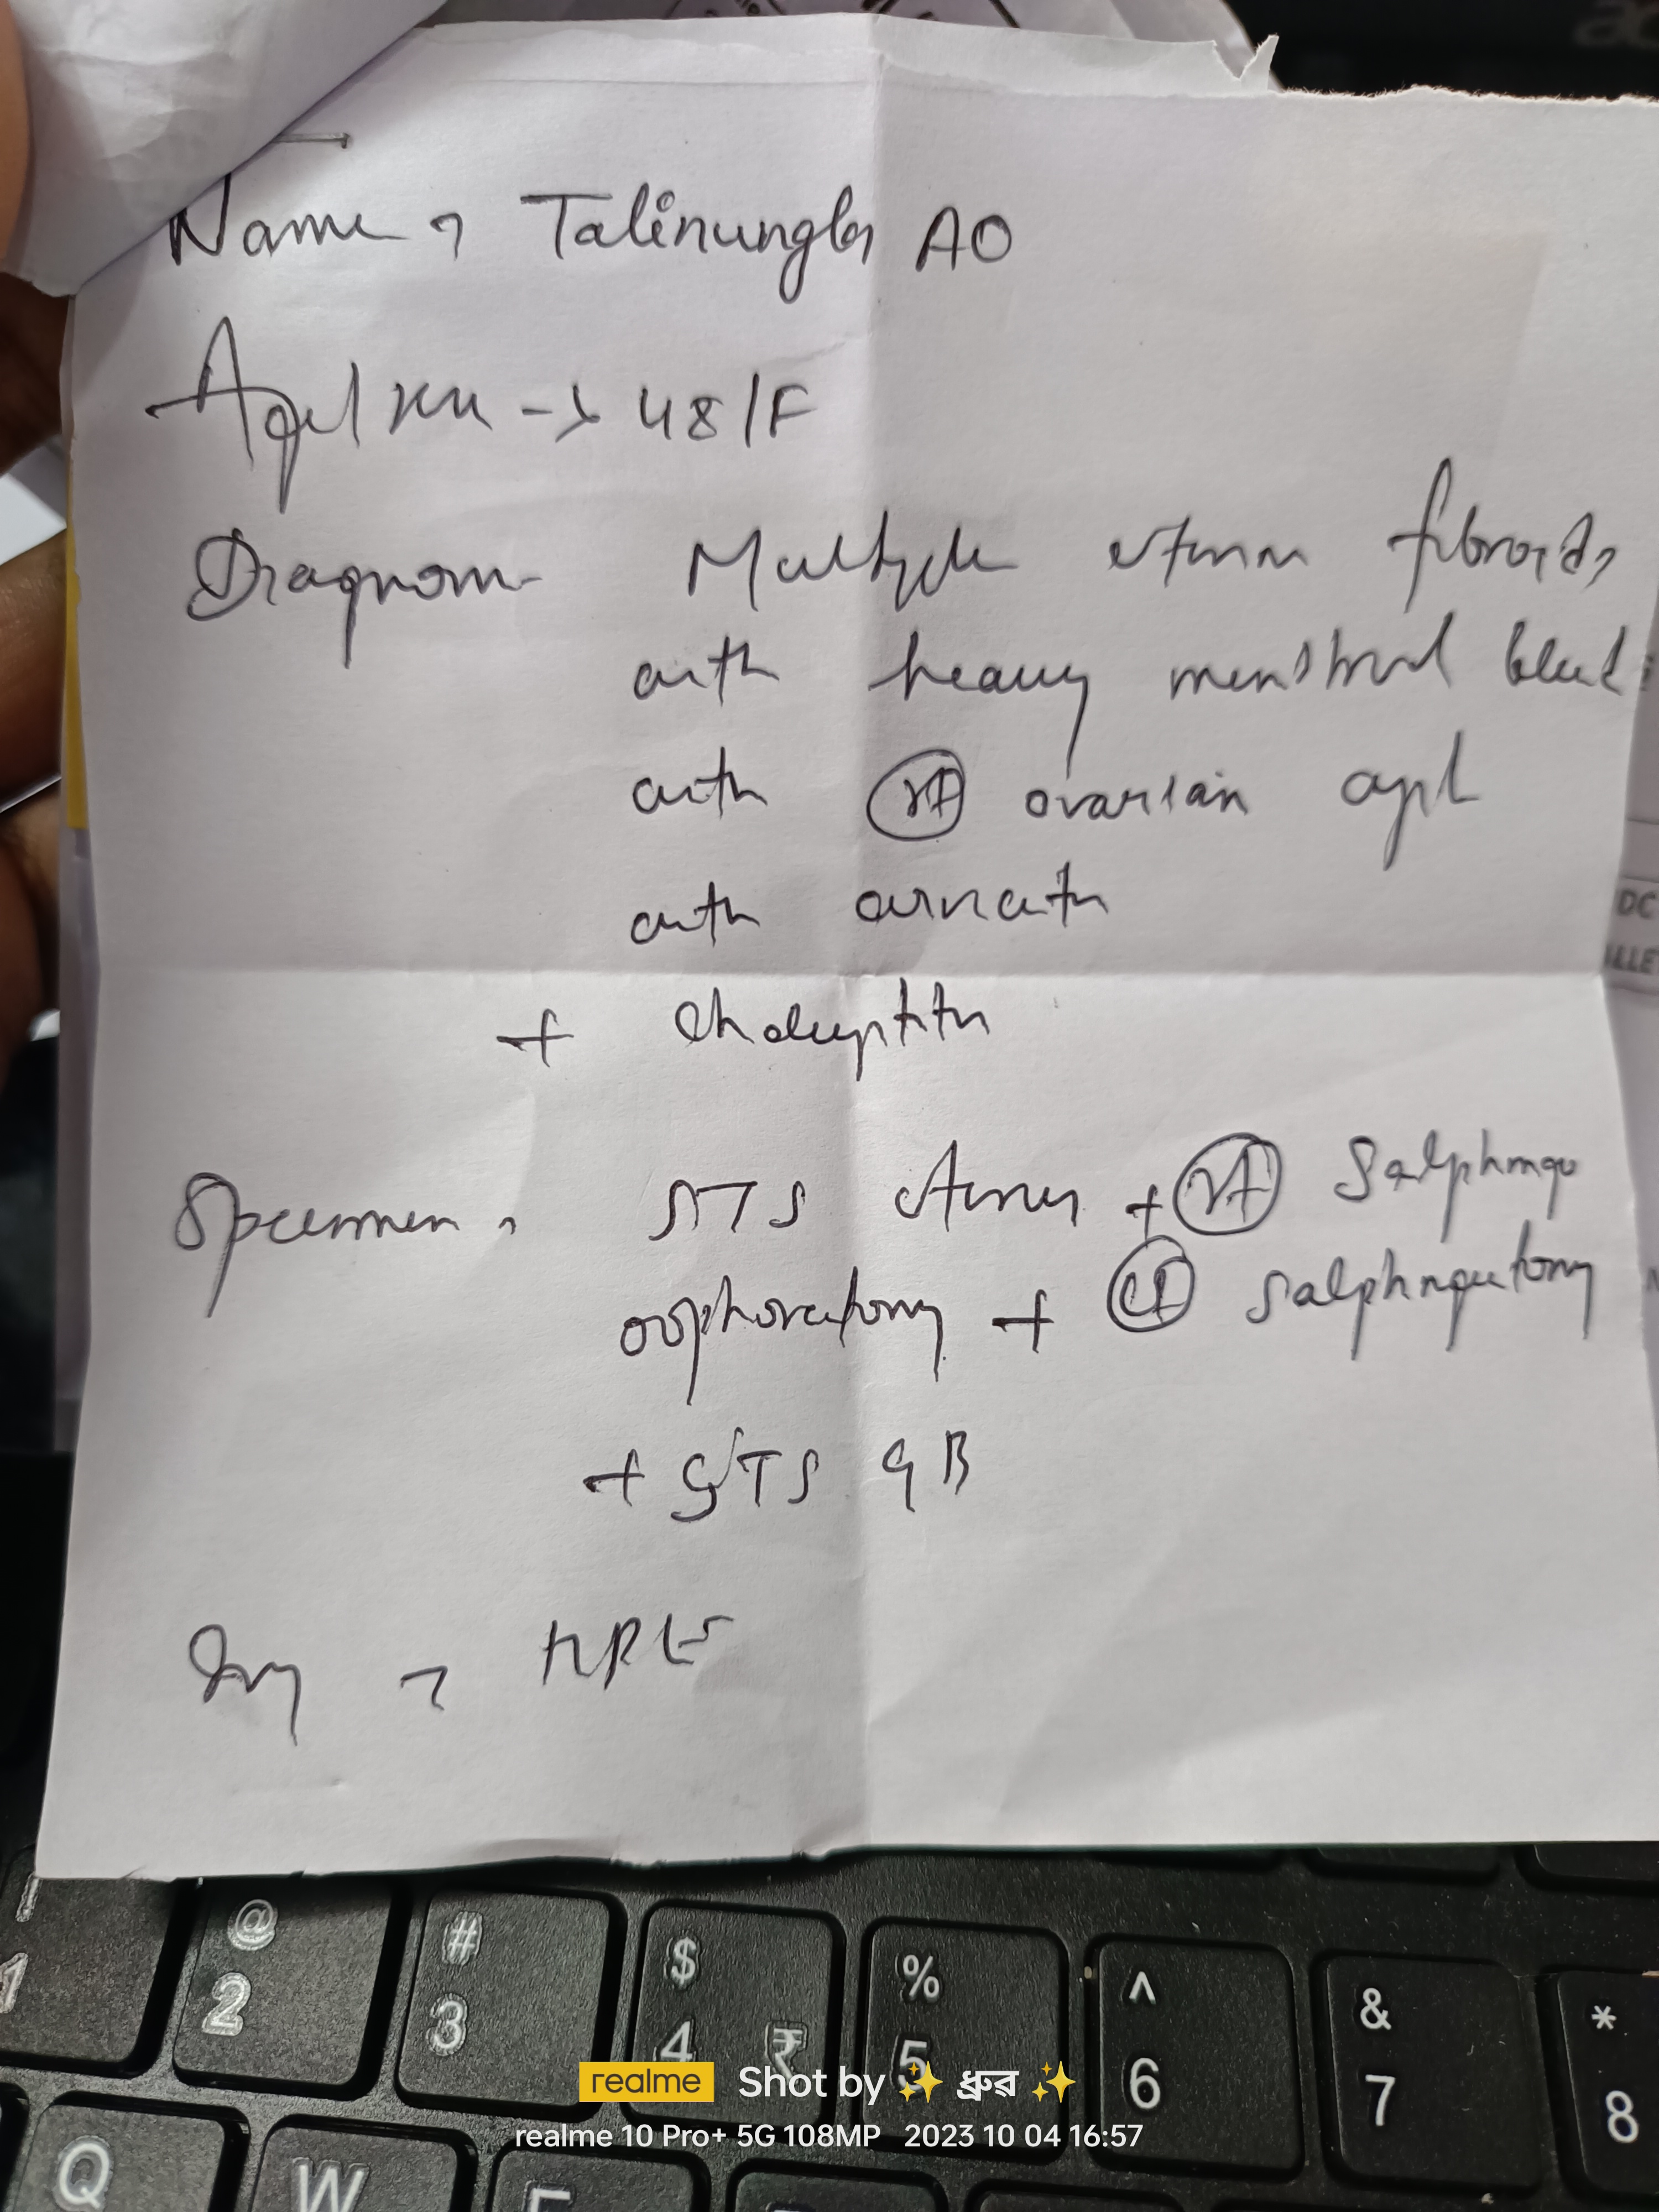 Name → Talinungla AO
Age/sex -> 48/F
Diagnosis Multiple uterine fibroids
with heavy menstrual bleed
with Rt ovarian cyst
with
+ Cholecystitis
Specimen → STS uterus + Rt Salphingo
oophorectomy + Lt Salphingectomy
+ STS GB
Inv → HPE
@
2
#
3
$
4 ₹
%
5
^
6
&
7
*
8
1
Q
W
realme Shot by ✨ ধ্ৰুৱ ✨
realme 10 Pro+ 5G 108MP 2023 10 04 16:57